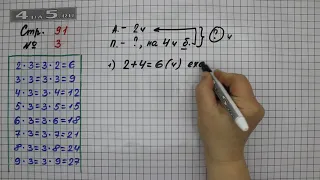 Стр. 91
№ 3
2 · 3 = 3 · 2 = 6
3 · 3 = 3 · 3 = 9
4 · 3 = 3 · 4 = 12
5 · 3 = 3 · 5 = 15
6 · 3 = 3 · 6 = 18
7 · 3 = 3 · 7 = 21
8 · 3 = 3 · 8 = 24
9 · 3 = 3 · 9 = 27
А. – 2 ч
П. – ?, на 4 ч б. ? ч
1) 2 + 4 = 6 (ч) еха